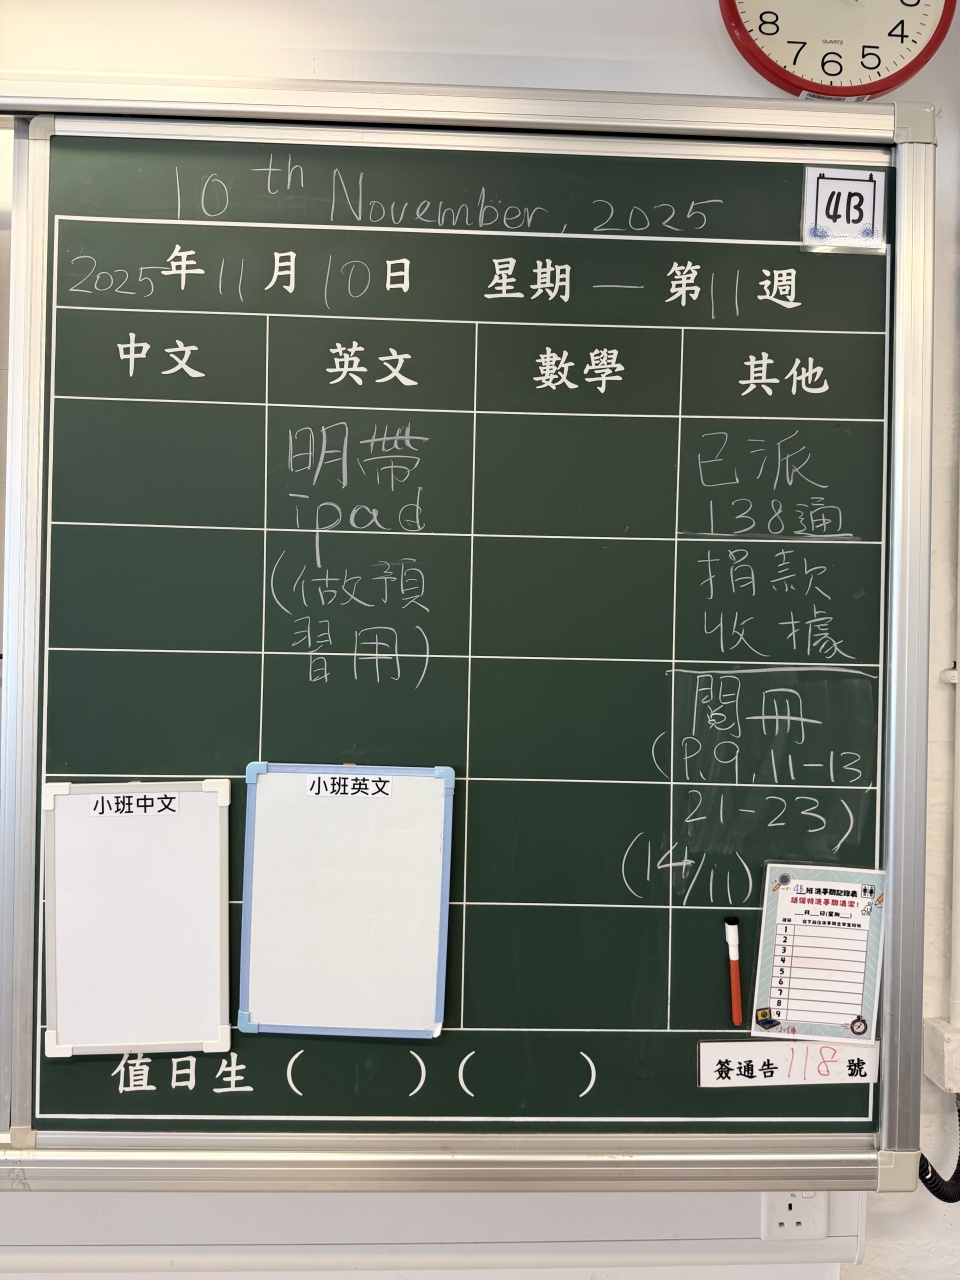 8 7 6 5 4
QUARTZ
10th November, 2025
4B
2025年11月10日 星期一 第11週
中文 英文 數學 其他
明帶
ipad
(做預
習用)
已派
138通
捐款
收據
閱冊
(P.9, 11-13,
21-23)
(14/11)
小班中文
小班英文
4B班洗手間記錄表
請保持洗手間清潔!
__月__日(星期__)
1
2
3
4
5
6
7
8
9
值日生( )( )
簽通告118號